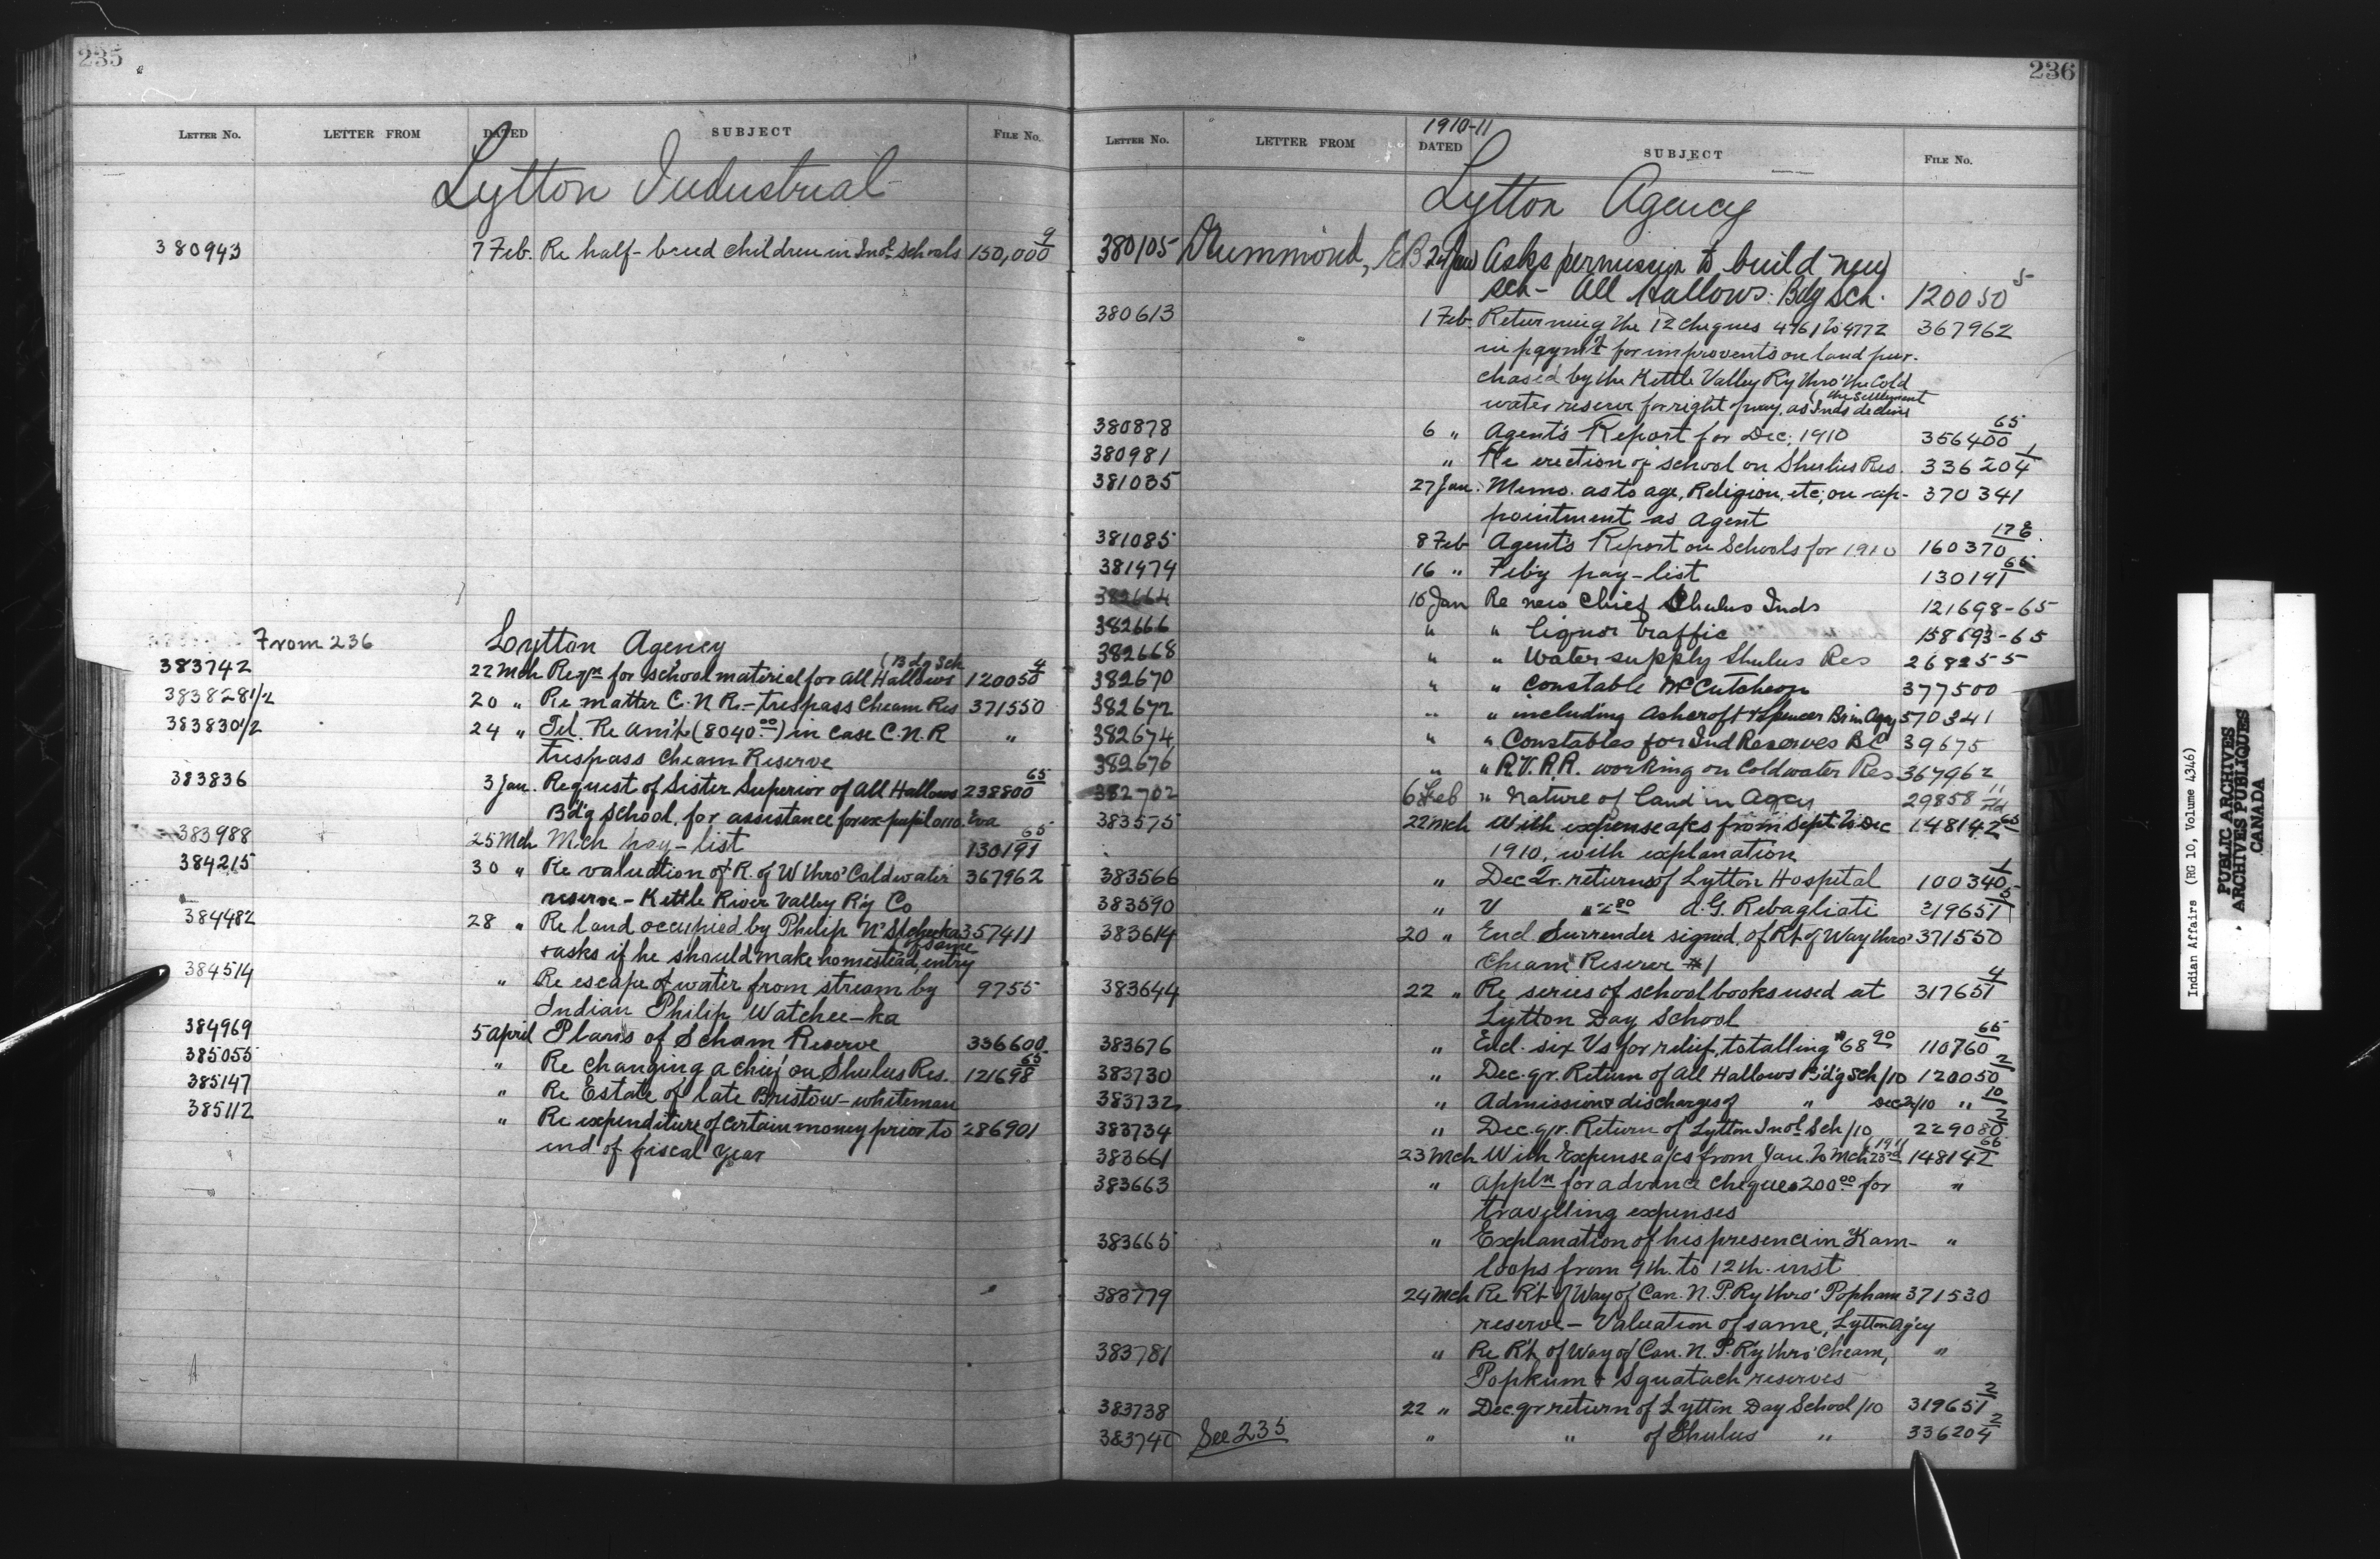 235
LETTER NO. LETTER FROM DATED SUBJECT FILE NO.
Lytton Industrial
380943 7 Feb. Re half-breed children in Indl Schools 150,000 9
From 236 Lytton Agency
383742 22 Mch Reqn for school material for All Hallows (Bdg Sch 120050 4
383828 1/2 20 " Re matter C.N.R. - trespass Cheam Res 371550
383830 1/2 24 " Tel. Re am't (8040.00) in case C.N.R "
trespass Cheam Reserve
383836 3 Jan. Request of Sister Superior of All Hallows 238800 65
Bd'g School, for assistance for ex pupil no. Eva
383988 25 Mch Mch pay-list 130191 65
384215 30 " Re valuation of R. of W thro' Coldwater 367962
reserve - Kettle River Valley R'y Co
384482 28 " Re land occupied by Philip 357411
& asks if he should make homestead entry of same
384514 " Re escape of water from stream by 9755
Indian Philip Watchee-ka
384969 5 April Plans of Scham Reserve 336600
385055 " Re changing a chief on Shulus Res. 121698 65
385147 " Re Estate of late Bristow - whiteman
385112 " Re expenditure of certain money prior to 286901
end of fiscal year
236
1910-11
LETTER NO. LETTER FROM DATED SUBJECT FILE NO.
Lytton Agency
380105 Drummond, Jan Asks permission to build new
sch - All Hallows Bdg Sch. 120050 5
380613 1 Feb. Returning the 12 cheques 4761 to 4772 367962
in paym't for improvents on land pur-
chased by the Kettle Valley R'y thro' the Cold
water reserve for right of way, as Inds decline (the settlement
380878 6 " Agent's Report for Dec. 1910 356400 65
380981 " Re erection of school on Shulus Res. 336204 1
381035 27 Jan. Memo. as to age, Religion, etc, on ap- 370341
pointment as Agent
381085 8 Feb Agent's Report on Schools for 1910 160370
381474 16 " Feb'y pay-list 130191 65
382664 10 Jan Re new Chief Shulus Inds 121698-65
382666 " " liquor traffic 158693-65
382668 " " Water supply Shulus Res 268255
382670 " " Constable McCutcheon 377500
382672 " " including Ashcroft & Spencer Br in Agcy 570341
382674 " " Constables for Ind Reserves BC 39675
382676 " " R.V.R.R. working on Coldwater Res 367962
382702 6 Feb " Nature of land in Agcy 29858
383575 22 Mch With expense a/cs from Sept. to Dec 148142 65
1910, with explanation
383566 " Dec Qr. returns of Lytton Hospital 100340 1
383590 " V A.G. Rebagliati 319651
383614 20 " Encl. Surrender signed, of Rt of Way thro' 371550
Cheam Reserve #1
383644 22 " Re series of school books used at 317651 4
Lytton Day School
383676 " Encl. six Vs for relief, totalling $68.90 110760 65
383730 " Dec. qr. Return of All Hallows B'd'g Sch/10 120050 2
383732 " Admission & discharges of " Dec Qr/10 " 10
383734 " Dec. qr. Return of Lytton Indl Sch/10 229080 2
383661 23 Mch With Expense a/cs from Jan. to Mch 23rd (1911 148142 65
383663 " Appln for advance cheque 200.00 for "
travelling expenses
383665 " Explanation of his presence in Kam- "
loops from 9th. to 12th. inst
383779 24 Mch Re Rt of Way of Can. N. P. Ry thro' Popham 371530
reserve - Valuation of same, Lytton Ag'cy
383781 " Re Rt of Way of Can. N. P. R'y thro' Cheam, "
Popkum & Squatach reserves
383738 22 " Dec. qr return of Lytton Day School/10 319651 2
383740 See 235 " " of Shulus " 336204 2
Indian Affairs (RG 10, Volume 4346)
PUBLIC ARCHIVES
ARCHIVES PUBLIQUES
CANADA